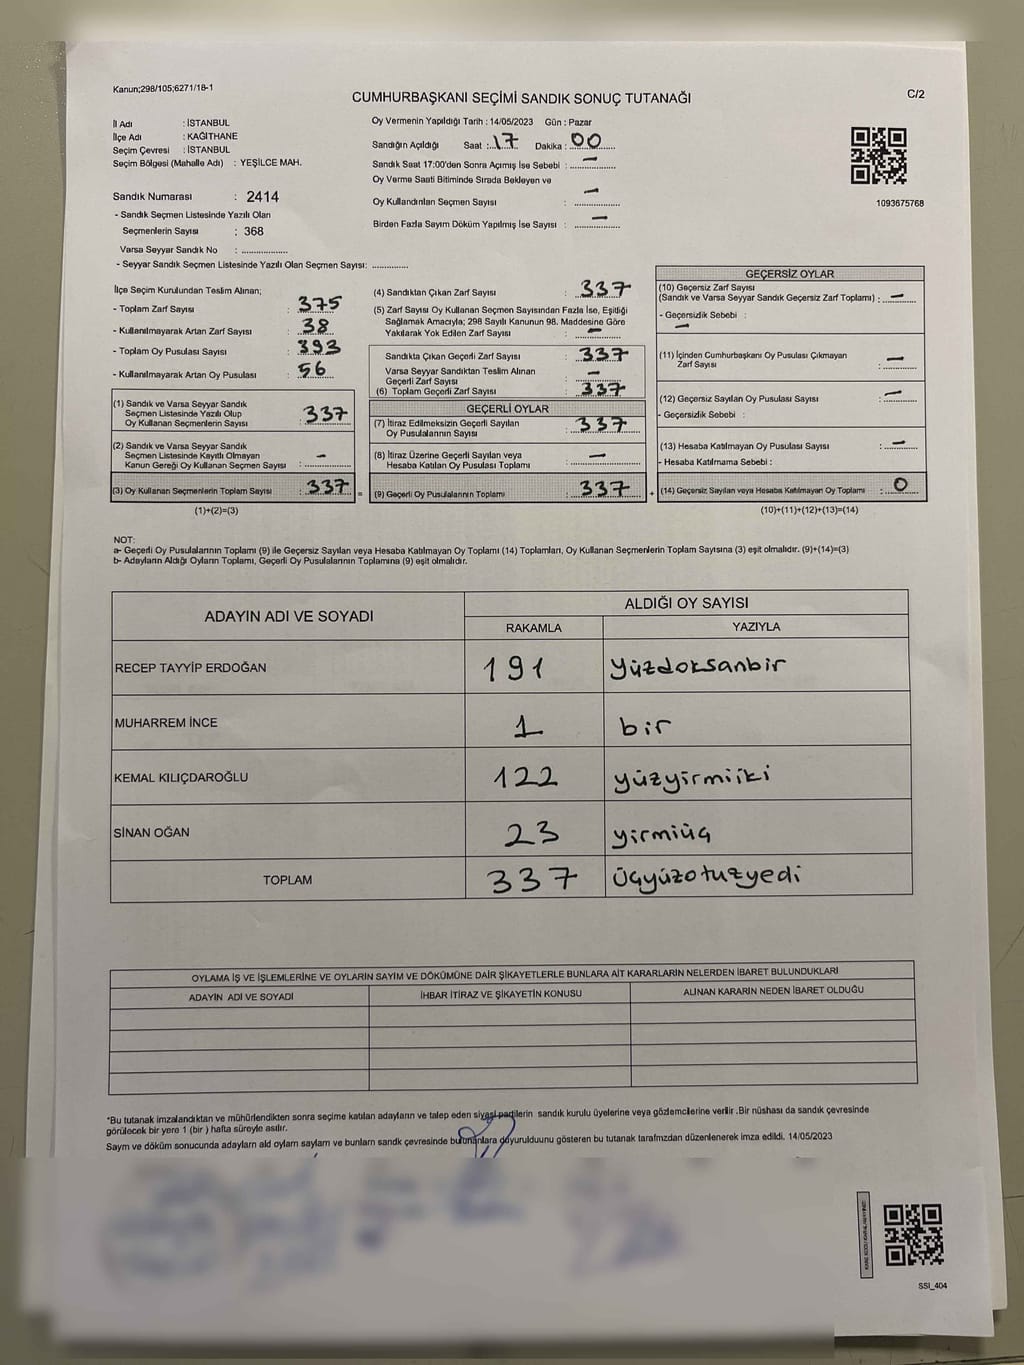 Kanun;298/105;6271/18-1
CUMHURBAŞKANI SEÇİMİ SANDIK SONUÇ TUTANAĞI
C/2
İl Adı : İSTANBUL
İlçe Adı : KAĞITHANE
Seçim Çevresi : İSTANBUL
Seçim Bölgesi (Mahalle Adı) : YEŞİLCE MAH.
Sandık Numarası : 2414
- Sandık Seçmen Listesinde Yazılı Olan
Seçmenlerin Sayısı : 368
Varsa Seyyar Sandık No : ................
- Seyyar Sandık Seçmen Listesinde Yazılı Olan Seçmen Sayısı: ............
Oy Vermenin Yapıldığı Tarih : 14/05/2023 Gün : Pazar
Sandığın Açıldığı Saat : 17 Dakika : 00
Sandık Saat 17:00'den Sonra Açımış İse Sebebi : —
Oy Verme Saati Bitiminde Sırada Bekleyen ve
Oy Kullandırılan Seçmen Sayısı : —
Birden Fazla Sayım Döküm Yapılmış İse Sayısı : —
1093675768
İlçe Seçim Kurulundan Teslim Alınan;
- Toplam Zarf Sayısı : 375
- Kullanılmayarak Artan Zarf Sayısı : 38
- Toplam Oy Pusulası Sayısı : 393
- Kullanılmayarak Artan Oy Pusulası : 56
(1) Sandık ve Varsa Seyyar Sandık
Seçmen Listesinde Yazılı Olup
Oy Kullanan Seçmenlerin Sayısı : 337
(2) Sandık ve Varsa Seyyar Sandık
Seçmen Listesinde Kayıtlı Olmayan
Kanun Gereği Oy Kullanan Seçmen Sayısı : —
(3) Oy Kullanan Seçmenlerin Toplam Sayısı : 337 =
(1)+(2)=(3)
(4) Sandıktan Çıkan Zarf Sayısı : 337
(5) Zarf Sayısı Oy Kullanan Seçmen Sayısından Fazla İse, Eşitliği
Sağlamak Amacıyla; 298 Sayılı Kanunun 98. Maddesine Göre
Yakılarak Yok Edilen Zarf Sayısı : —
Sandıkta Çıkan Geçerli Zarf Sayısı : 337
Varsa Seyyar Sandıktan Teslim Alınan
Geçerli Zarf Sayısı : —
(6) Toplam Geçerli Zarf Sayısı : 337
GEÇERLİ OYLAR
(7) İtiraz Edilmeksizin Geçerli Sayılan
Oy Pusulalarının Sayısı : 337
(8) İtiraz Üzerine Geçerli Sayılan veya
Hesaba Katılan Oy Pusulası Toplamı : —
(9) Geçerli Oy Pusulalarının Toplamı : 337 +
GEÇERSİZ OYLAR
(10) Geçersiz Zarf Sayısı
(Sandık ve Varsa Seyyar Sandık Geçersiz Zarf Toplamı) : —
- Geçersizlik Sebebi :
—
(11) İçinden Cumhurbaşkanı Oy Pusulası Çıkmayan
Zarf Sayısı : —
(12) Geçersiz Sayılan Oy Pusulası Sayısı : —
- Geçersizlik Sebebi :
(13) Hesaba Katılmayan Oy Pusulası Sayısı : —
- Hesaba Katılmama Sebebi :
(14) Geçersiz Sayılan veya Hesaba Katılmayan Oy Toplamı : 0
(10)+(11)+(12)+(13)=(14)
NOT:
a- Geçerli Oy Pusulalarının Toplamı (9) ile Geçersiz Sayılan veya Hesaba Katılmayan Oy Toplamı (14) Toplamları, Oy Kullanan Seçmenlerin Toplam Sayısına (3) eşit olmalıdır. (9)+(14)=(3)
b- Adayların Aldığı Oyların Toplamı, Geçerli Oy Pusulalarının Toplamına (9) eşit olmalıdır.
ADAYIN ADI VE SOYADI
ALDIĞI OY SAYISI
RAKAMLA YAZIYLA
RECEP TAYYİP ERDOĞAN 191 yüzdoksanbir
MUHARREM İNCE 1 bir
KEMAL KILIÇDAROĞLU 122 yüzyirmiiki
SİNAN OĞAN 23 yirmiüç
TOPLAM 337 üçyüzotuzyedi
OYLAMA İŞ VE İŞLEMLERİNE VE OYLARIN SAYIM VE DÖKÜMÜNE DAİR ŞİKAYETLERLE BUNLARA AİT KARARLARIN NELERDEN İBARET BULUNDUKLARI
ADAYIN ADI VE SOYADI İHBAR İTİRAZ VE ŞİKAYETİN KONUSU ALINAN KARARIN NEDEN İBARET OLDUĞU
*Bu tutanak imzalandıktan ve mühürlendikten sonra seçime katılan adayların ve talep eden siyasi partilerin sandık kurulu üyelerine veya gözlemcilerine verilir .Bir nüshası da sandık çevresinde
görülecek bir yere 1 (bir ) hafta süreyle asılır.
Sayım ve döküm sonucunda adayların ald oyların sayları ve bunların sandk çevresinde bulunanlara duyurulduunu gösteren bu tutanak tarafmzdan düzenlenerek imza edildi. 14/05/2023
SSI_404